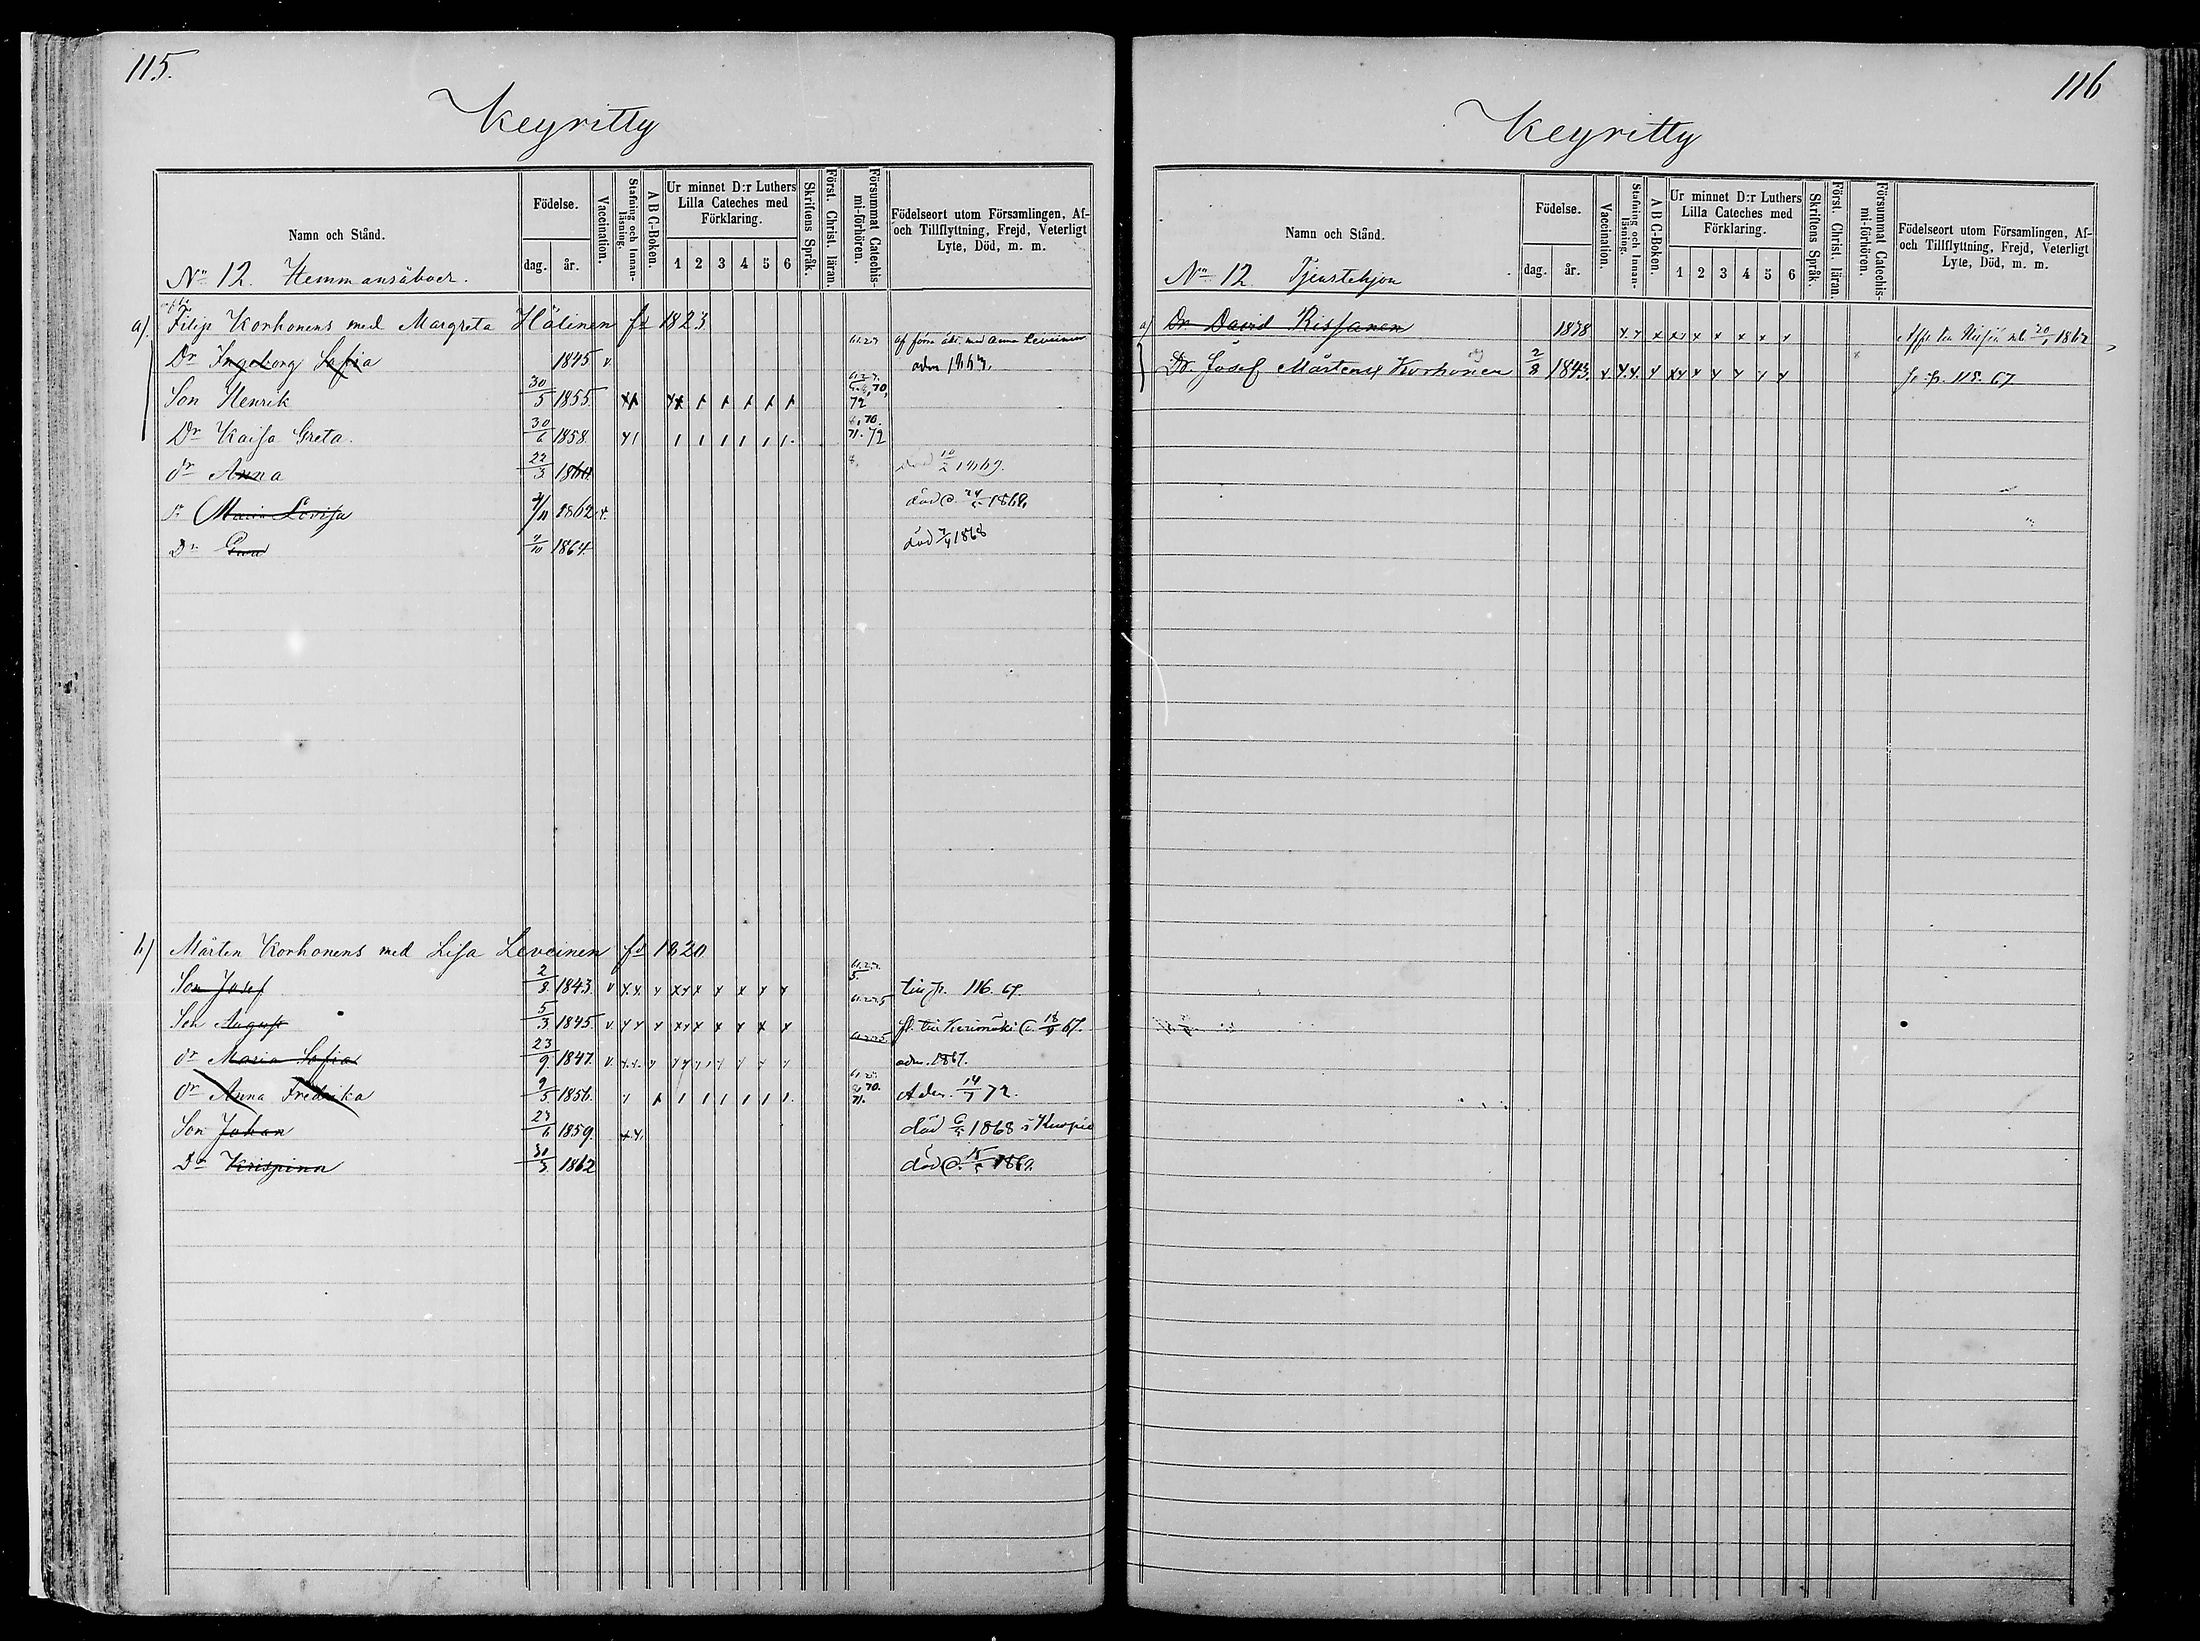 115.
Keyritty
Namn och Stånd.
Födelse.
dag. år.
Vaccination.
Stafning och Innanläsning.
A B C-Boken.
Ur minnet D:r Luthers Lilla Cateches med Förklaring.
1 2 3 4 5 6
Skriftens Språk.
Först. Christ. läran.
Försummat Catechismi-förhören.
Födelseort utom Församlingen, Af- och Tillflyttning, Frejd, Veterligt Lyte, Död, m. m.
No 12. Hemmansåboer.
a). Filip Korhonens med Margreta Hälinen fd 1823
Dr Ingeborg Sofia 1845 v af förra äkt. med Anna Leveinen
Son Henrik 30/5 1855. 70, 72
Dr Kaisa Greta. 30/6 1858. 70. 71. 72
dr Anna 22/3 1860. död 10/2 1869.
Maria Lovisa 1862 död 1868
Dr 1864 död 1868
b) Mårten Korhonens med Lisa Leveinen fd 1820
Son Josef 2/8 1843. v x x x x x x x x x 116. 67.
Son August 5/3 1845. v 18/9 67.
dr Maria Sofia 23/9 1847. v adm. 1867.
dr Anna Fredrika 9/5 1856. 70. 71. 14/7 72.
Son Johan 1859. död 6/5 1868 i Kuopio
Dr Krispinn 1862 död
116
Keyritty
Namn och Stånd.
Födelse.
dag. år.
Vaccination.
Stafning och Innanläsning.
A B C-Boken.
Ur minnet D:r Luthers Lilla Cateches med Förklaring.
1 2 3 4 5 6
Skriftens Språk.
Först. Christ. läran.
Försummat Catechismi-förhören.
Födelseort utom Församlingen, Af- och Tillflyttning, Frejd, Veterligt Lyte, Död, m. m.
No 12 Tjenstehjon
a) Dr. David Rissanen 1838 x x x x x x x x x
Dr. Josef Mårtens Korhonen 2/8 1843. x x x x x x x x x fr. p. 115. 67